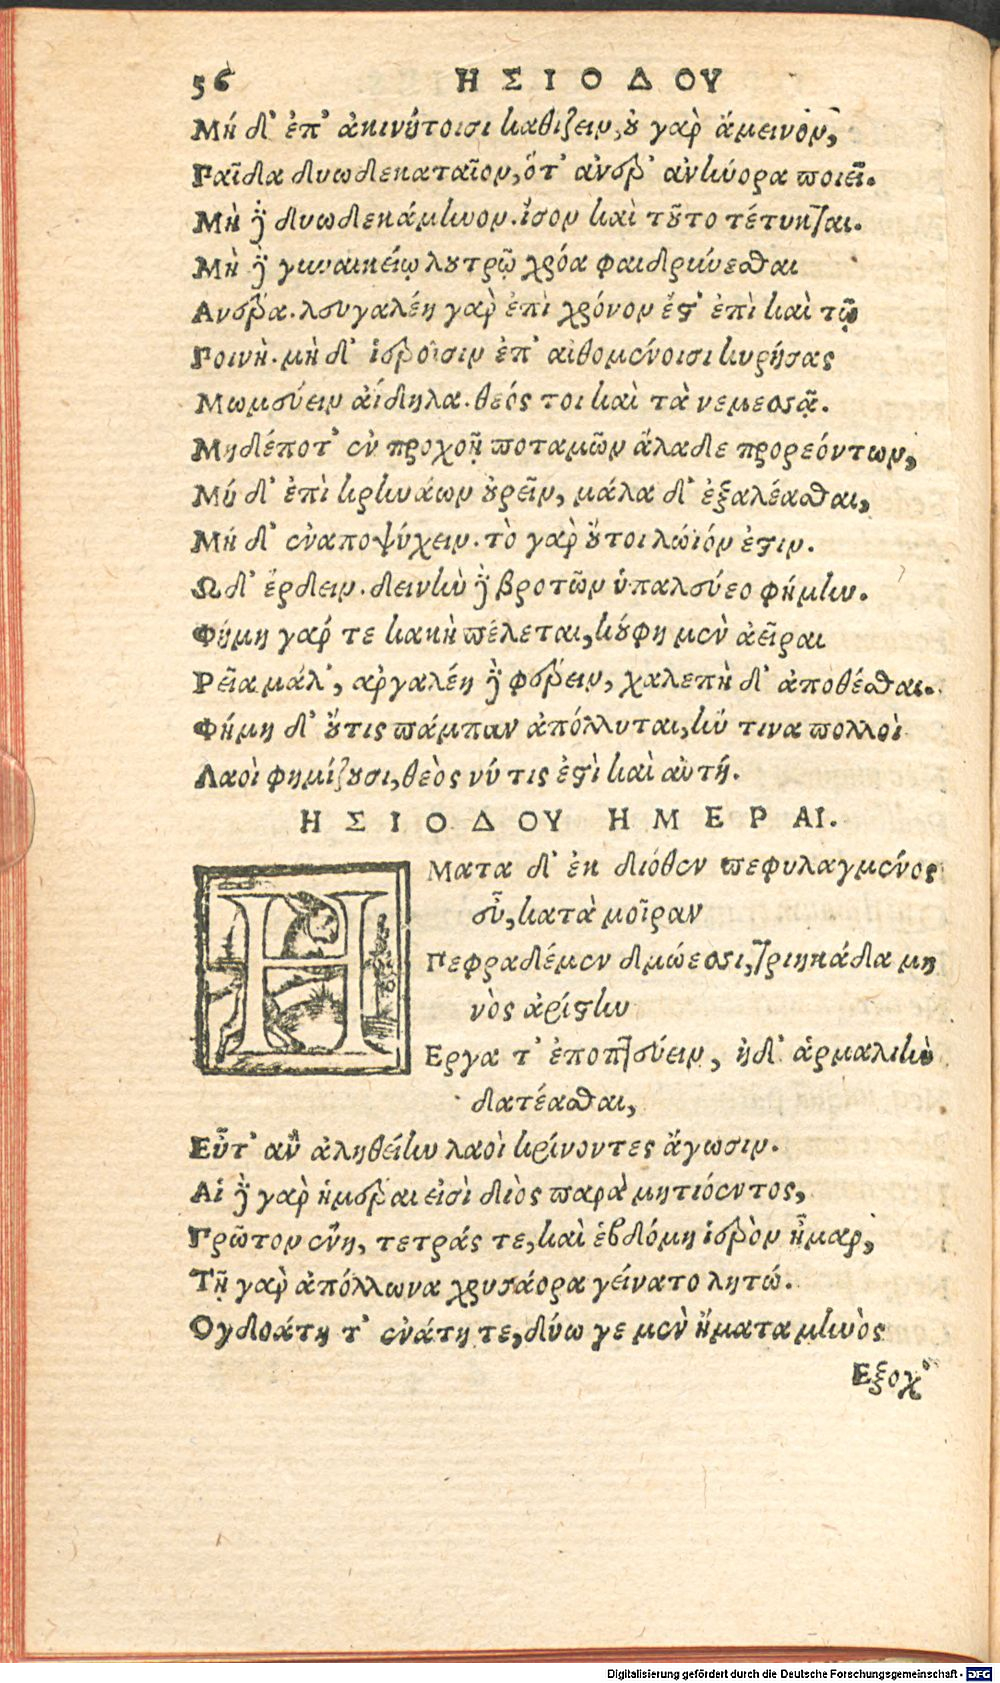 56 ΗΣΙΟΔΟΥ
Μή δ' ἐπ' ἀκινήτοισι καθιζειν, ȣ γαρ̀ ἄμεινον,
Παῖδα δυωδεκαταῖον, ὅτ' ἀνερ' ἀνήνορα ποιεῖ.
Μὴ δὲ δυωδεκάμηνον. ἶσον καὶ τȣ͂το τέτυκται.
Μὴ δὲ γυναικείῳ λȣτρῷ χρόα φαιδρύνεσθαι
Ανερα. λευγαλέη γαρ̀ ἐπὶ χρόνον ἔστ' ἐπὶ καὶ τῷ
Ποινὴ. μὴ δ' ἱεροῖσιν ἐπ' αἰθομένοισι κυρήσας
Μωμεύειν ἀίδηλα. θεός τοι καὶ τὰ νεμεσσᾷ.
Μηδέποτ' ἐν προχοῇ ποταμῶν ἅλαδε προρεόντων,
Μή δ' ἐπὶ κρηνάων ȣρεῖν, μάλα δ' ἐξαλέασθαι,
Μή δ' ἐναποψύχειν. τὸ γαρ̀ ȣ̓́τοι λώϊόν ἐστιν.
Ωδ' ἔρδειν. δεινὴν δὲ βροτῶν ὑπαλεύεο φήμην.
Φήμη γαρ́ τε κακὴ πέλεται, κȣ́φη μὲν ἀεῖραι
Ρεῖα μάλ', ἀργαλέη δὲ φέρειν, χαλεπὴ δ' ἀποθέσθαι.
Φήμη δ' ȣ̓́τις πάμπαν ἀπόλλυται, ἥν τινα πολλοὶ
Λαοὶ φημίζȣσι, θεὸς νύ τις ἐστὶ καὶ αὐτή.
ΗΣΙΟΔΟΥ ΗΜΕΡΑΙ.
ΗΜατα δ' ἐκ διόθεν πεφυλαγμένος
εὖ, κατὰ μοῖραν
Πεφραδέμεν δμώεσσι, τριηκάδα μη
νὸς ἀρίστην
Εργα τ' ἐποπτεύειν, ἠδ' ἁρμαλιὴν
δατέασθαι,
Εὖτ' ἂν ἀληθείην λαοὶ κρίνοντες ἄγωσιν.
Αἱ δὲ γαρ̀ ἡμέραι εἰσὶ διὸς παρὰ μητιόεντος,
Πρῶτον ἕνη, τετράς τε, καὶ ἑβδόμη ἱερὸν ἦμαρ,
Τῇ γαρ̀ ἀπόλλωνα χρυσάορα γείνατο λητώ.
Ογδοάτη τ' ἐνάτη τε, δύω γε μὲν ἤματα μηνὸς
Εξοχ'
Digitalisierung gefördert durch die Deutsche Forschungsgemeinschaft - DFG